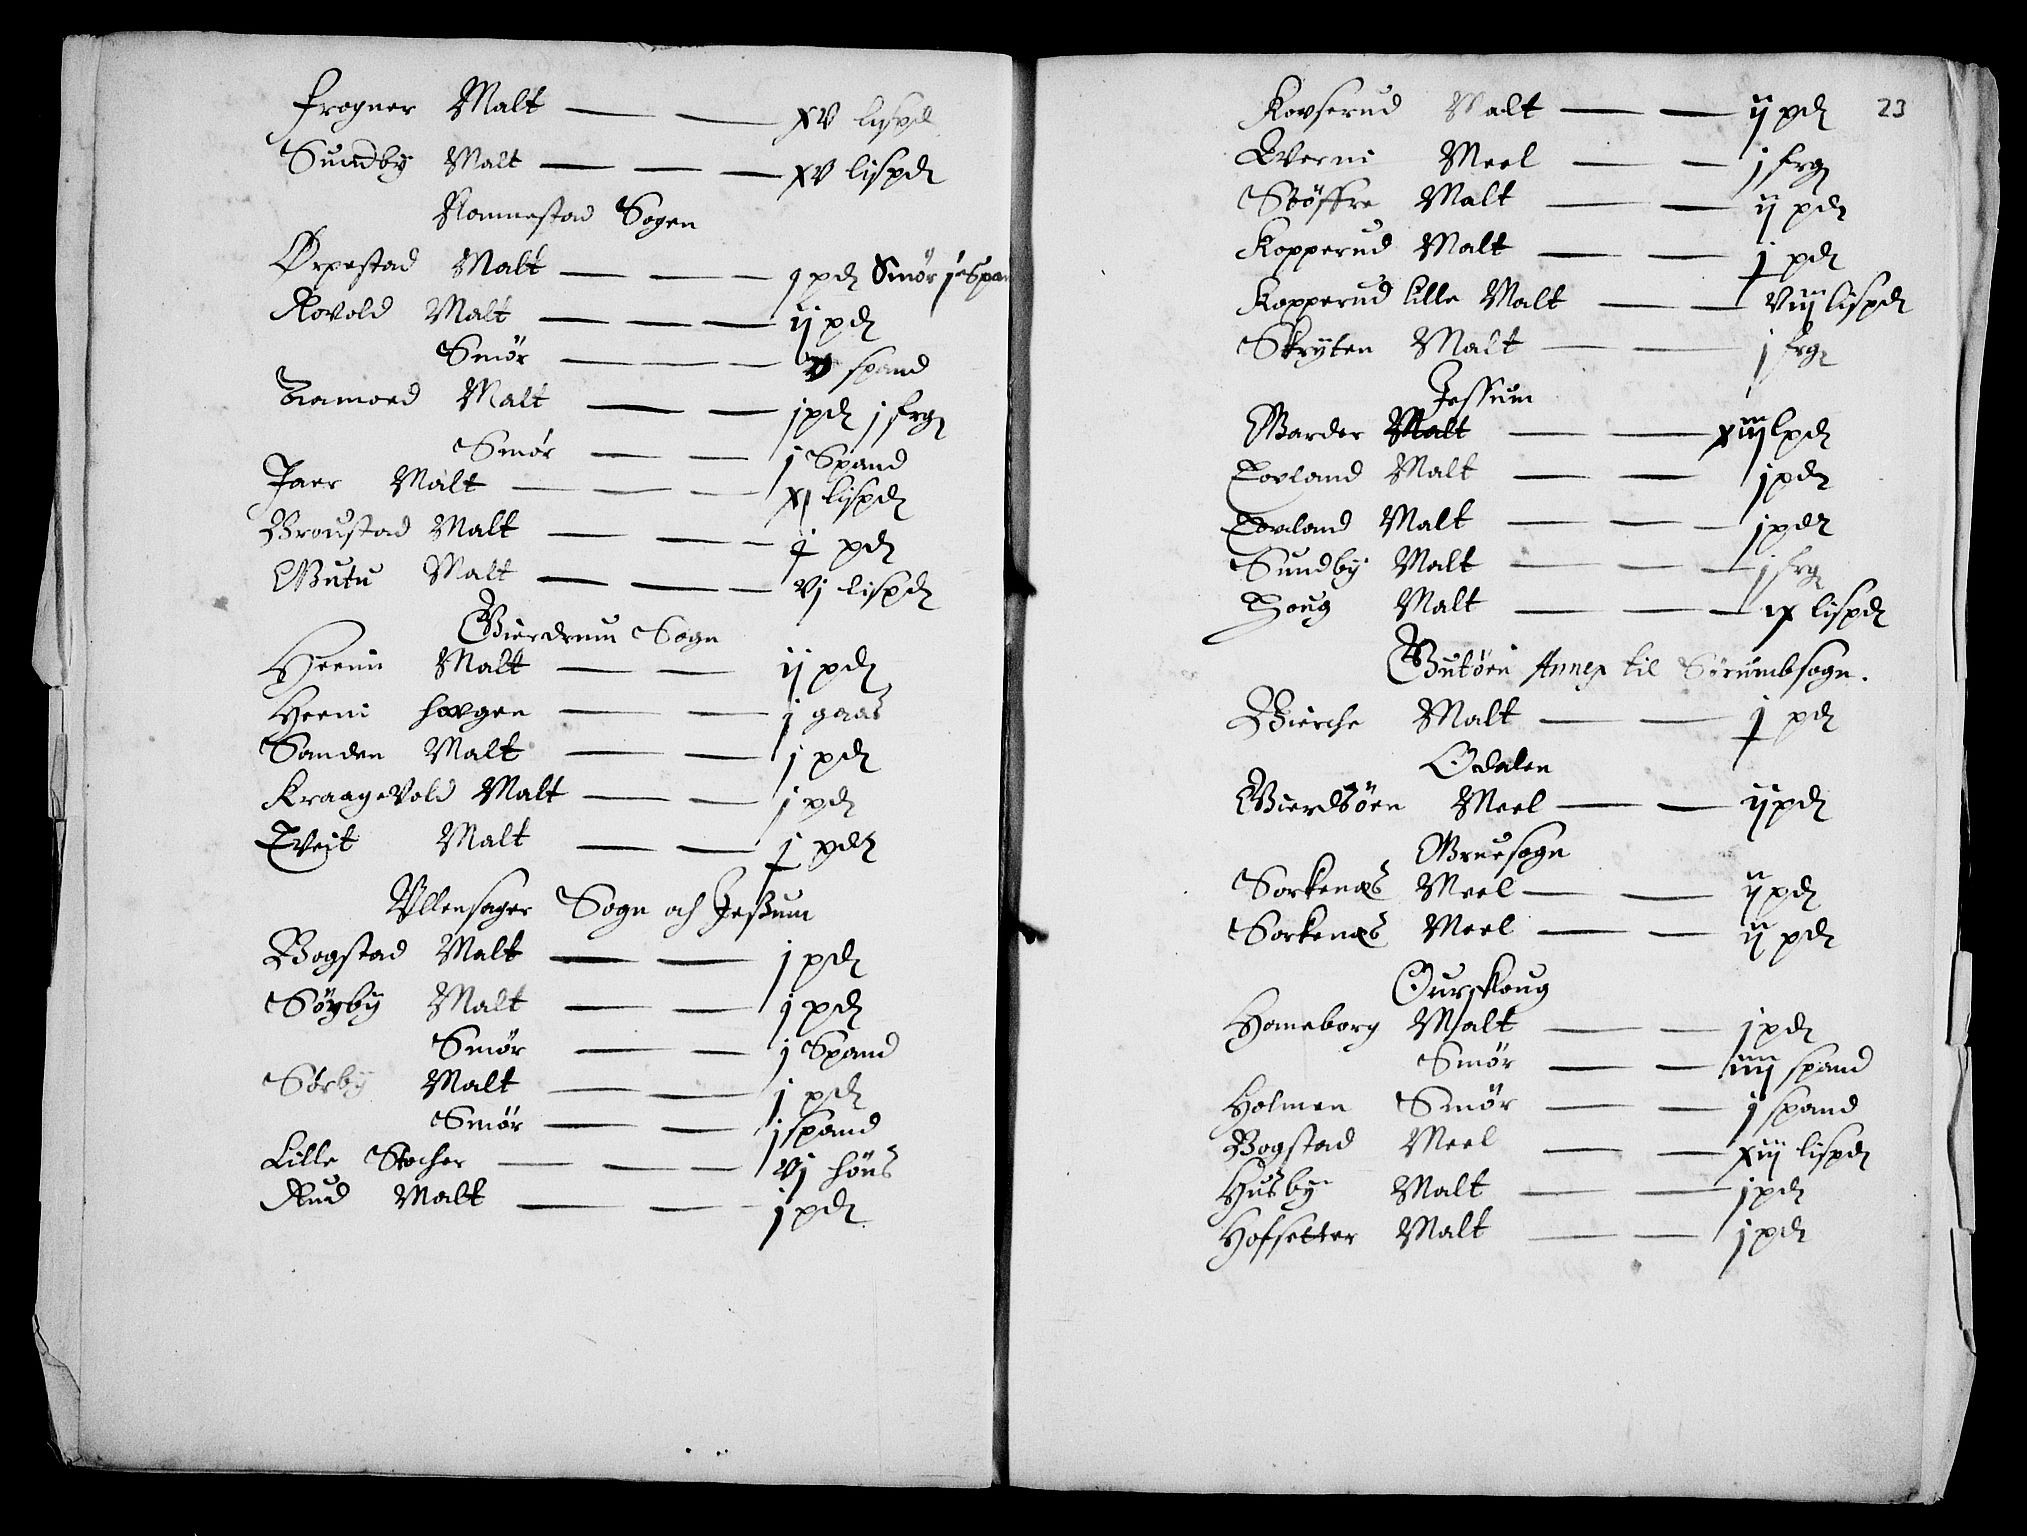 Frogner Malt — — xv lispd
Sundby Malt — — — xv lispd
Rommestad Sogen
Ørpestad Malt — — — j pd Smør j Span
Rovold Malt — — — ij pd
Smør — — — spand
Malt — — j pd j frg
Smør — — j Spand
Jaer Malt — — — xj lispd
Broustad Malt — — — j pd
Butu Malt — — — vj lispd
Bierdrum Sogn
Heeni Malt — — ij pd
Heeni hovgen — — j gaas
Sanden Malt — — j pd
Kraagevold Malt — — j pd
Tveit Malt — — j pd
Ullensager Sogn och Jessum
Bogstad Malt — — j pd
Söÿby Malt — — j pd
Smör — — j Spand
Sörby Malt — — j pd
Smör — — j spand
Lille Stocher — — — vj höns
Rud Malt — — j pd
23
Kovserud Malt — — ij pd
Qverni Meel — — j frg
Stöffre Malt — — ij pd
Kopperud Malt — — j pd
Kopperud lille Malt — — viij lispd
Skryten Malt — — j frg
Jessum
Garder Malt — — xiij lpd
Tovland Malt — — j pd
Tovland Malt — — — j pd
Sundby Malt — — — j frg
Houg Malt — — — ix lispd
Butöen Annex til Sörumbsogn.
Bierche Malt — — j pd
Odalen
Gierdsöen Meel — — ij pd
Gruesogn
Sorkenæs Meel — — ij pd
Sorkenæs Meel — — ij pd
Ourskoug
Homeborg Malt — — j pd
Smör — — iiij spand
Holmen Smör — — j spand
Bogstad Meel — — xiij lispd
Husby Malt — — j pd
Hofsetter Malt — — j pd